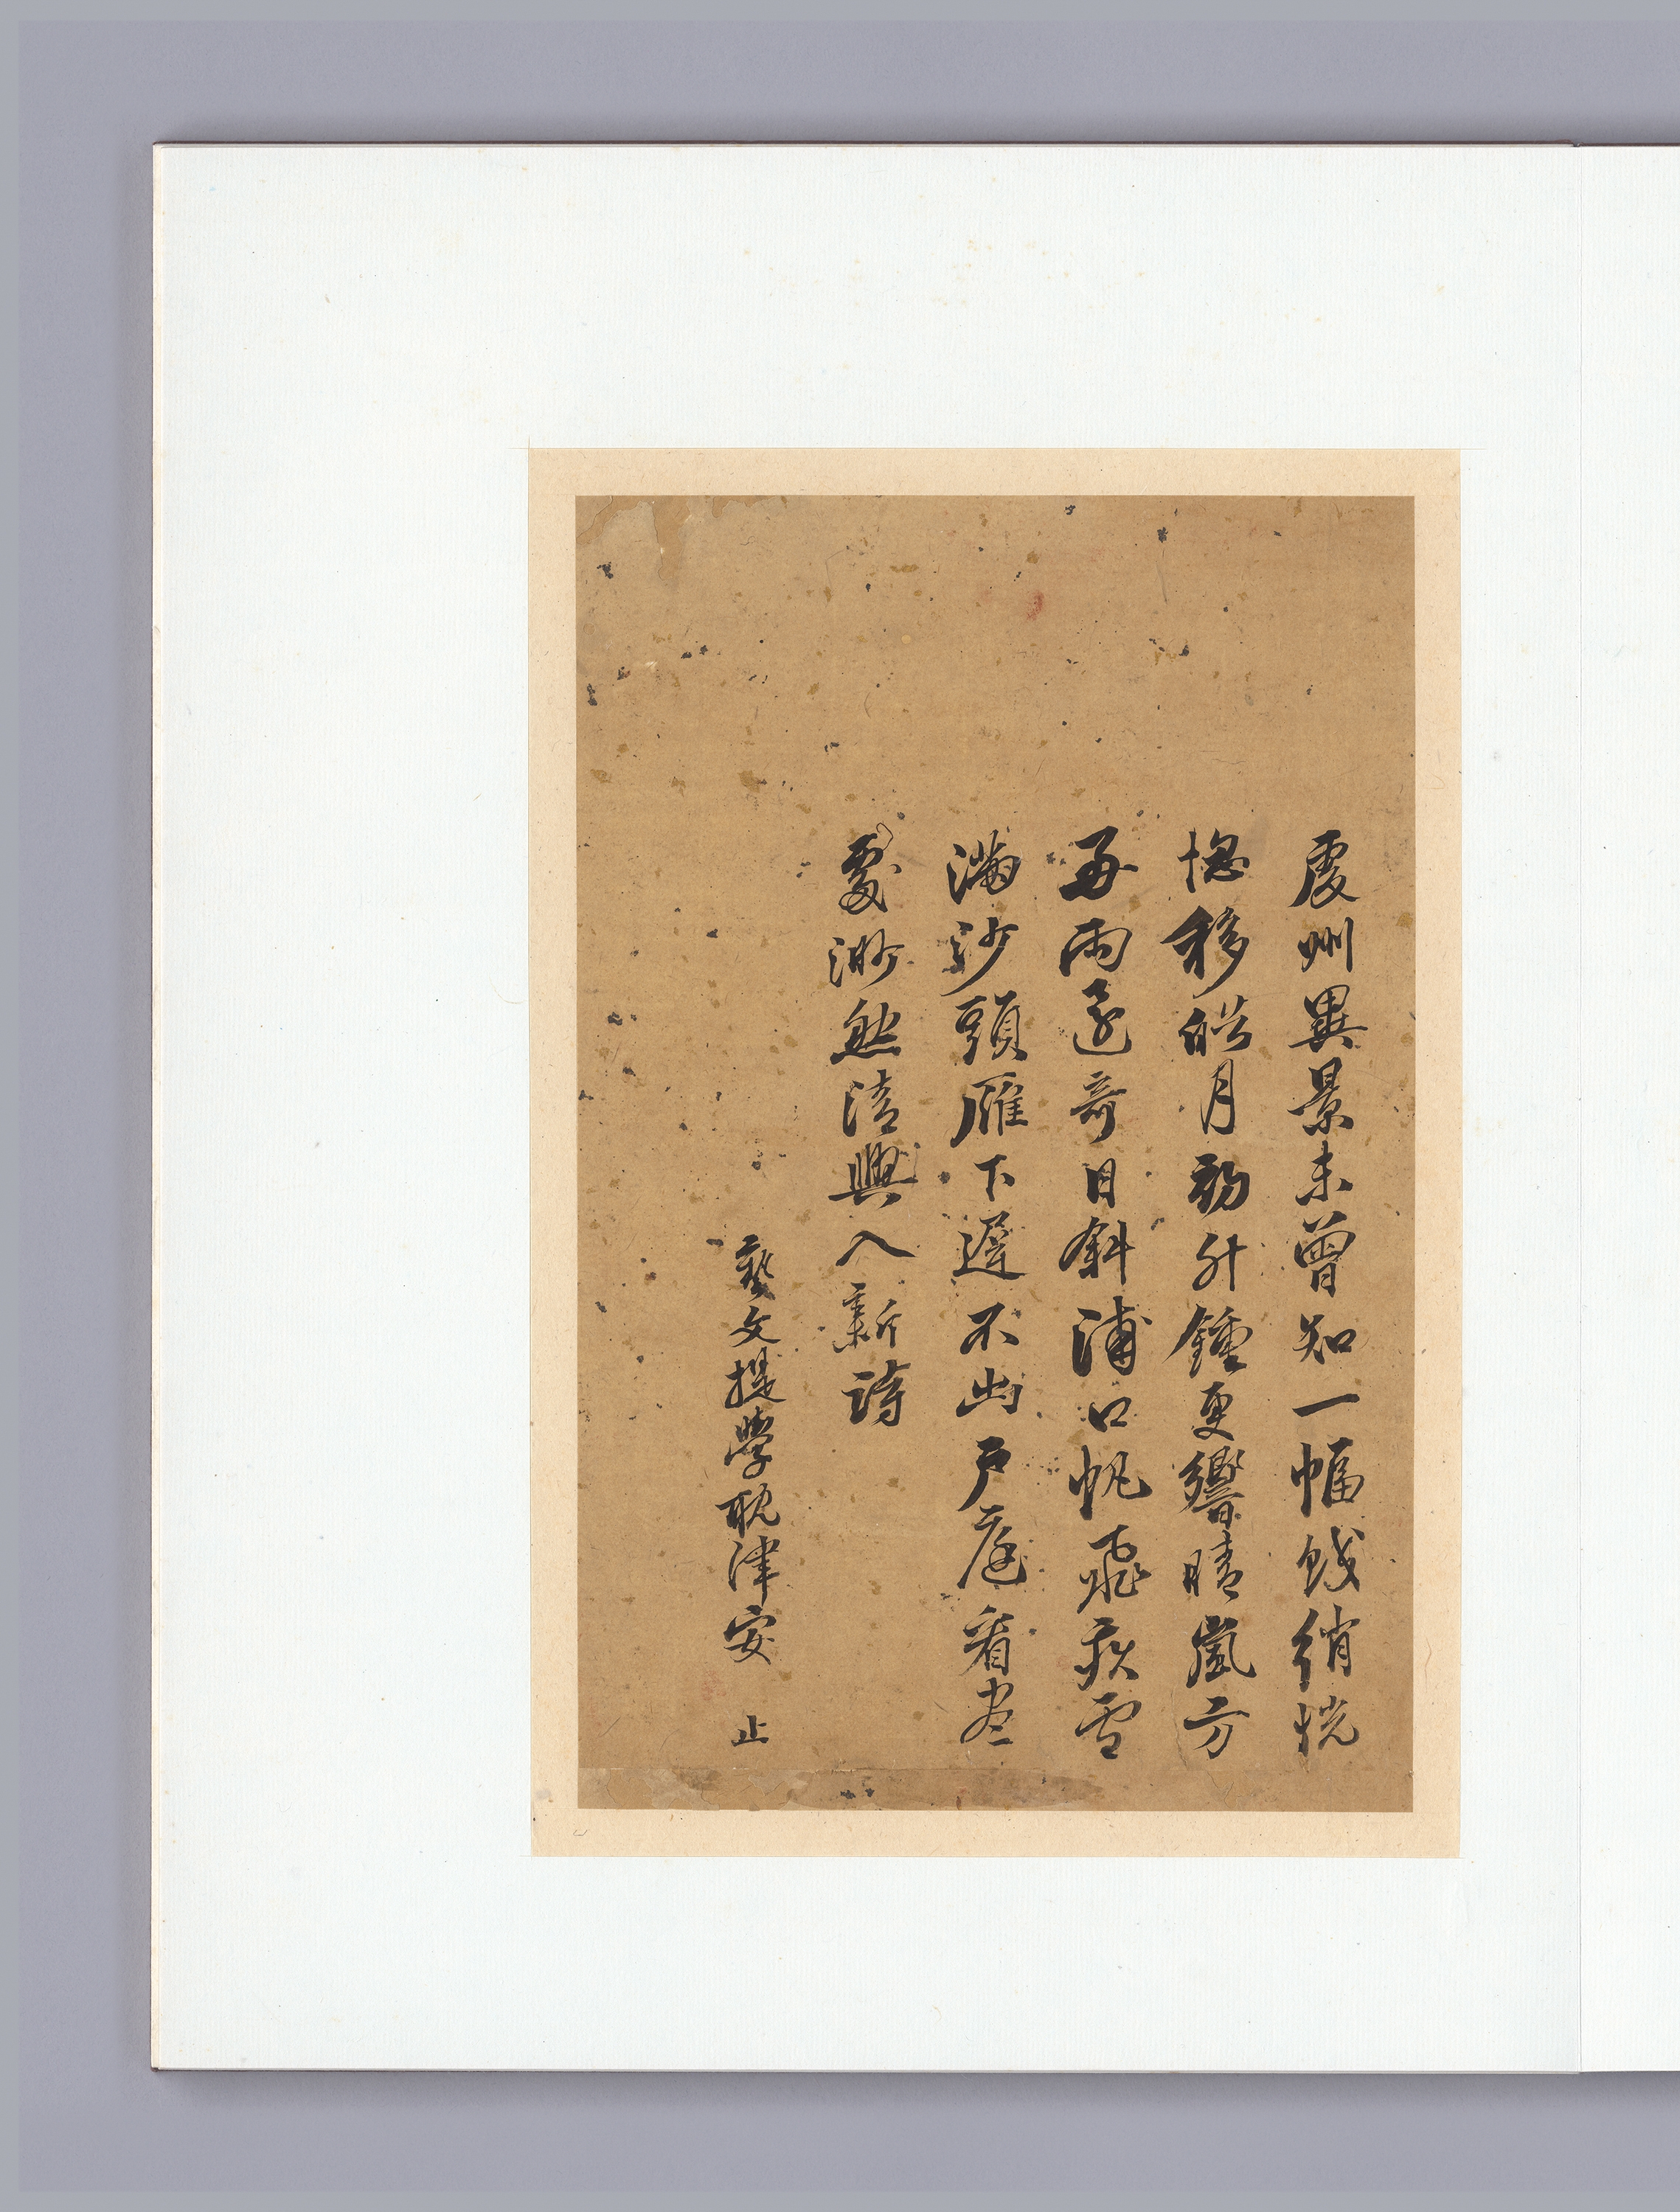 虔州異景未曾知一幅鮫綃恍
惚移皓月初升鍾更響晴嵐方
再雨還奇日斜浦口帆飛疾雪
滿沙頭雁下遲不出戶庭看盡
處渺然清興入新詩
藝文提學耽津安止